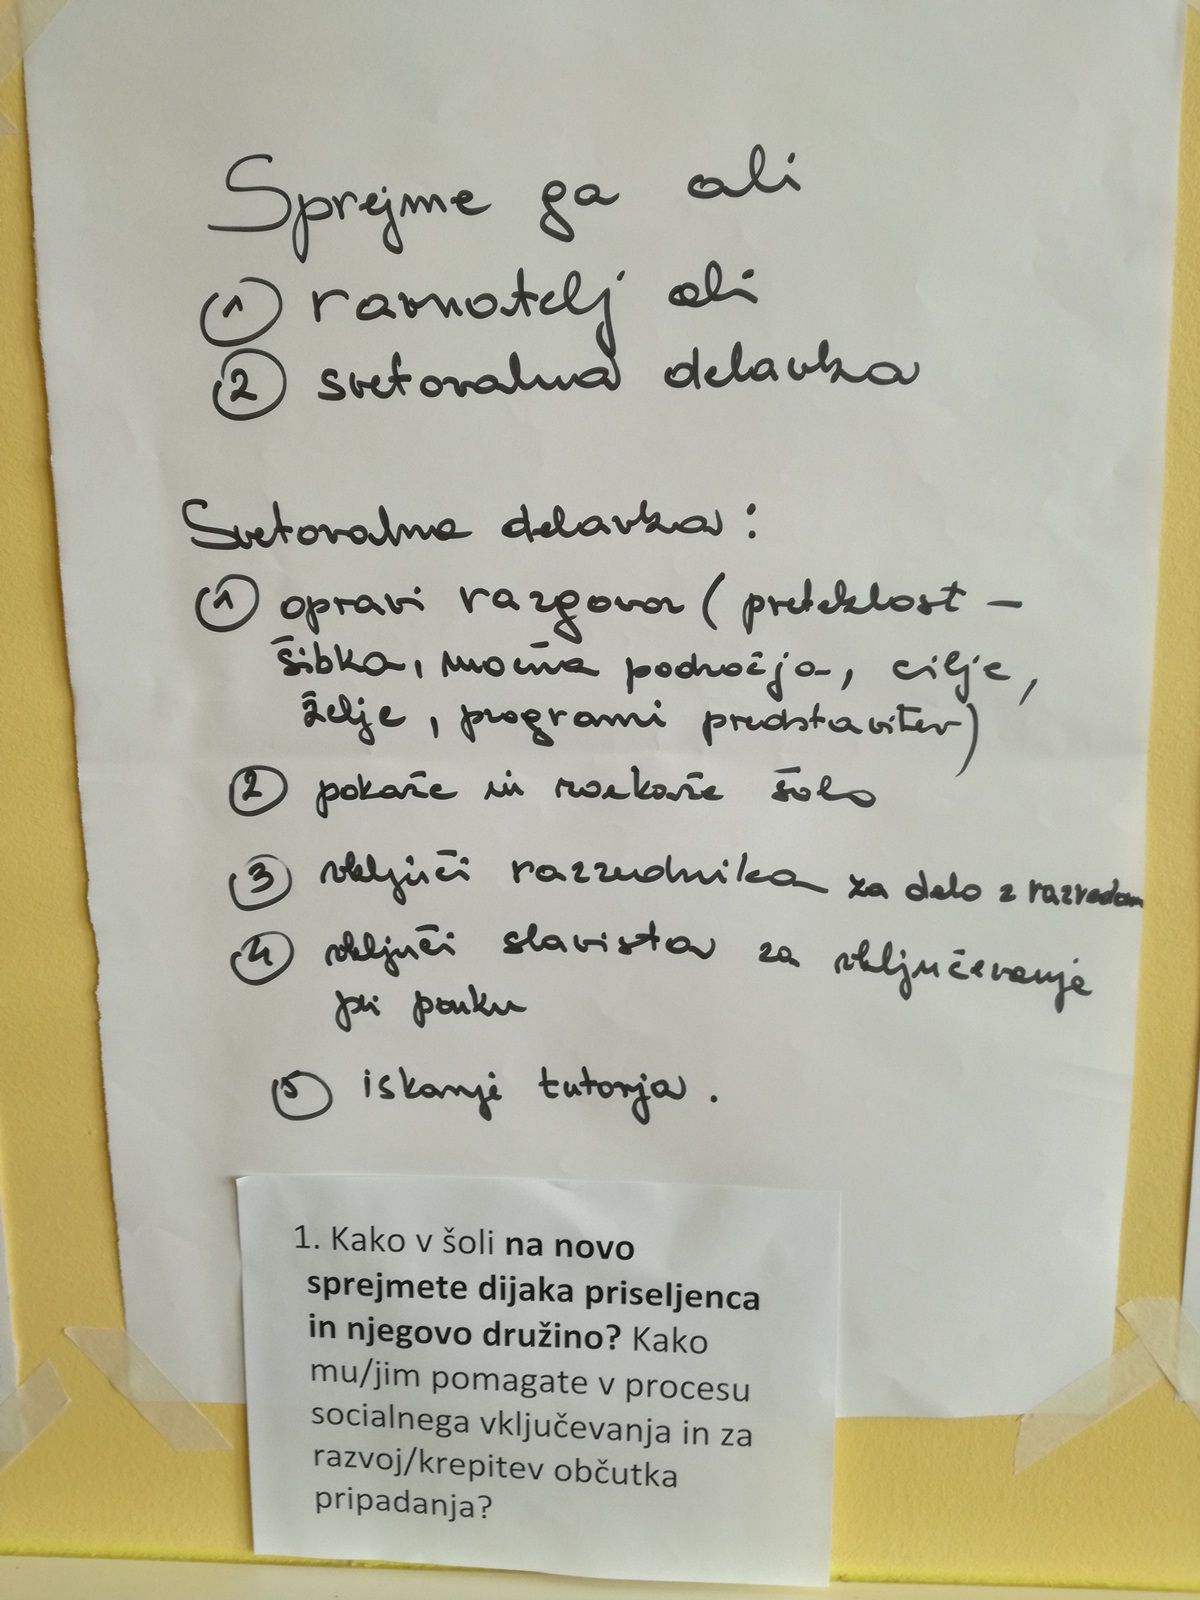 Sprejme ga ali
① ravnatelj ali
② svetovalna delavka
Svetovalna delavka:
① opravi razgovor (preteklost –
šibka, močna področja, cilje,
želje, programi predstavitev)
② pokaže in razkaže šolo
③ vključi razrednika za delo z razredom
④ vključi slavista za vključevanje
pri pouku
⑤ iskanje tutorja.
1. Kako v šoli na novo
sprejmete dijaka priseljenca
in njegovo družino? Kako
mu/jim pomagate v procesu
socialnega vključevanja in za
razvoj/krepitev občutka
pripadanja?